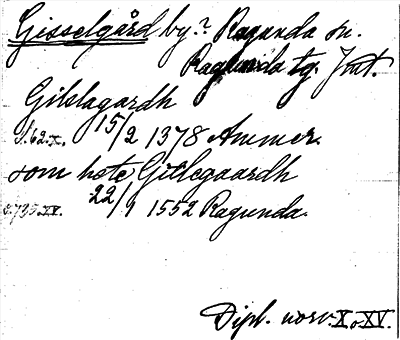 Gisselgård by.? Ragunda sn.
Ragunda tg. Jmt.
Gitslagardh
s.62.X. 15/2 1378 Ammer.
som hete Gitlegaardh
s.735.XV. 22/9 1552 Ragunda.
Dipl. norv. X o XV.